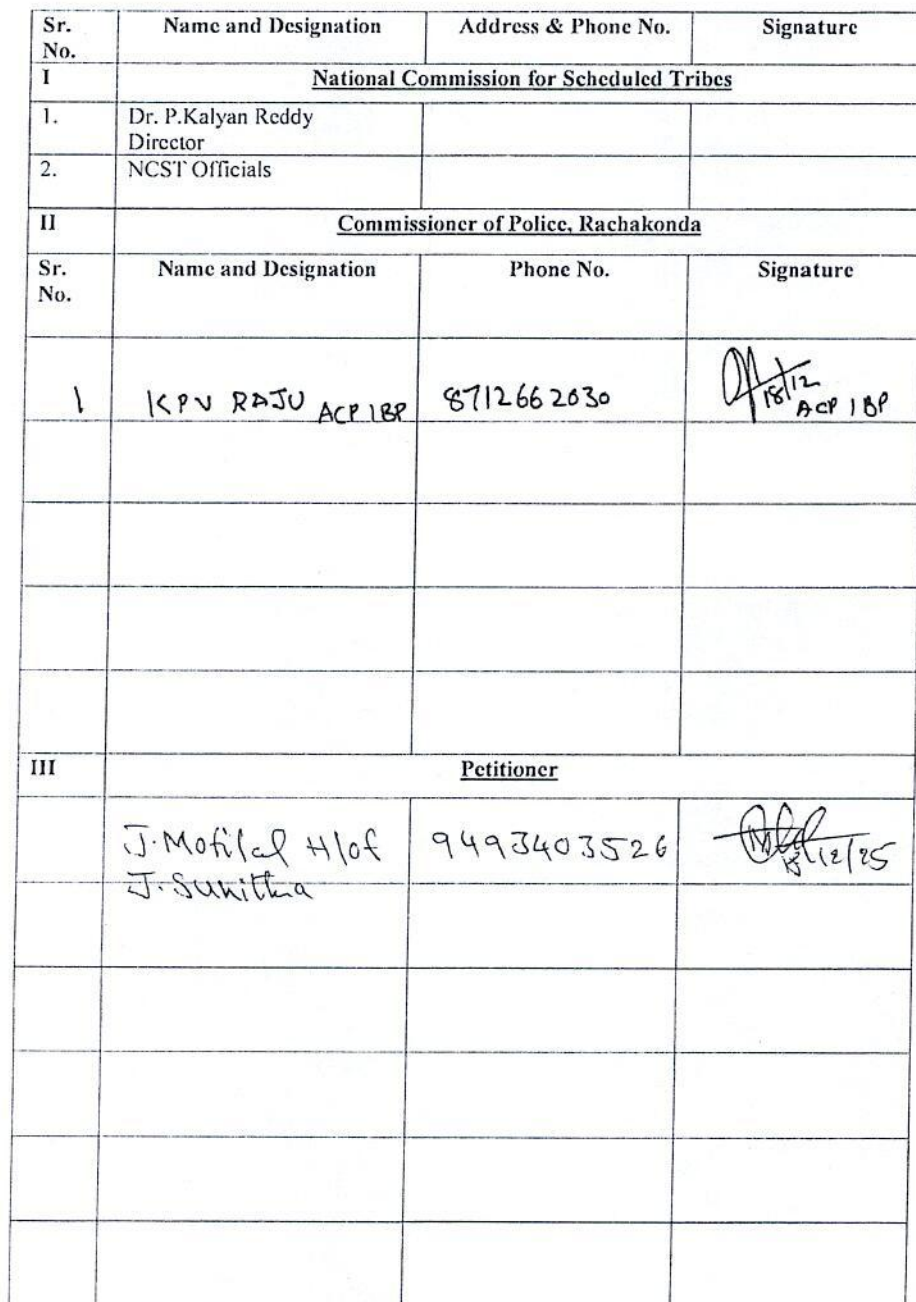 Sr. No. Name and Designation Address & Phone No. Signature
I National Commission for Scheduled Tribes
1. Dr. P.Kalyan Reddy
Director
2. NCST Officials
II Commissioner of Police, Rachakonda
Sr. No. Name and Designation Phone No. Signature
1 KPV RAJU ACP IBP 8712662030 18/12
ACP IBP
III Petitioner
J. Motilal H/of 9493403526 18/12/25
J. Sunitha